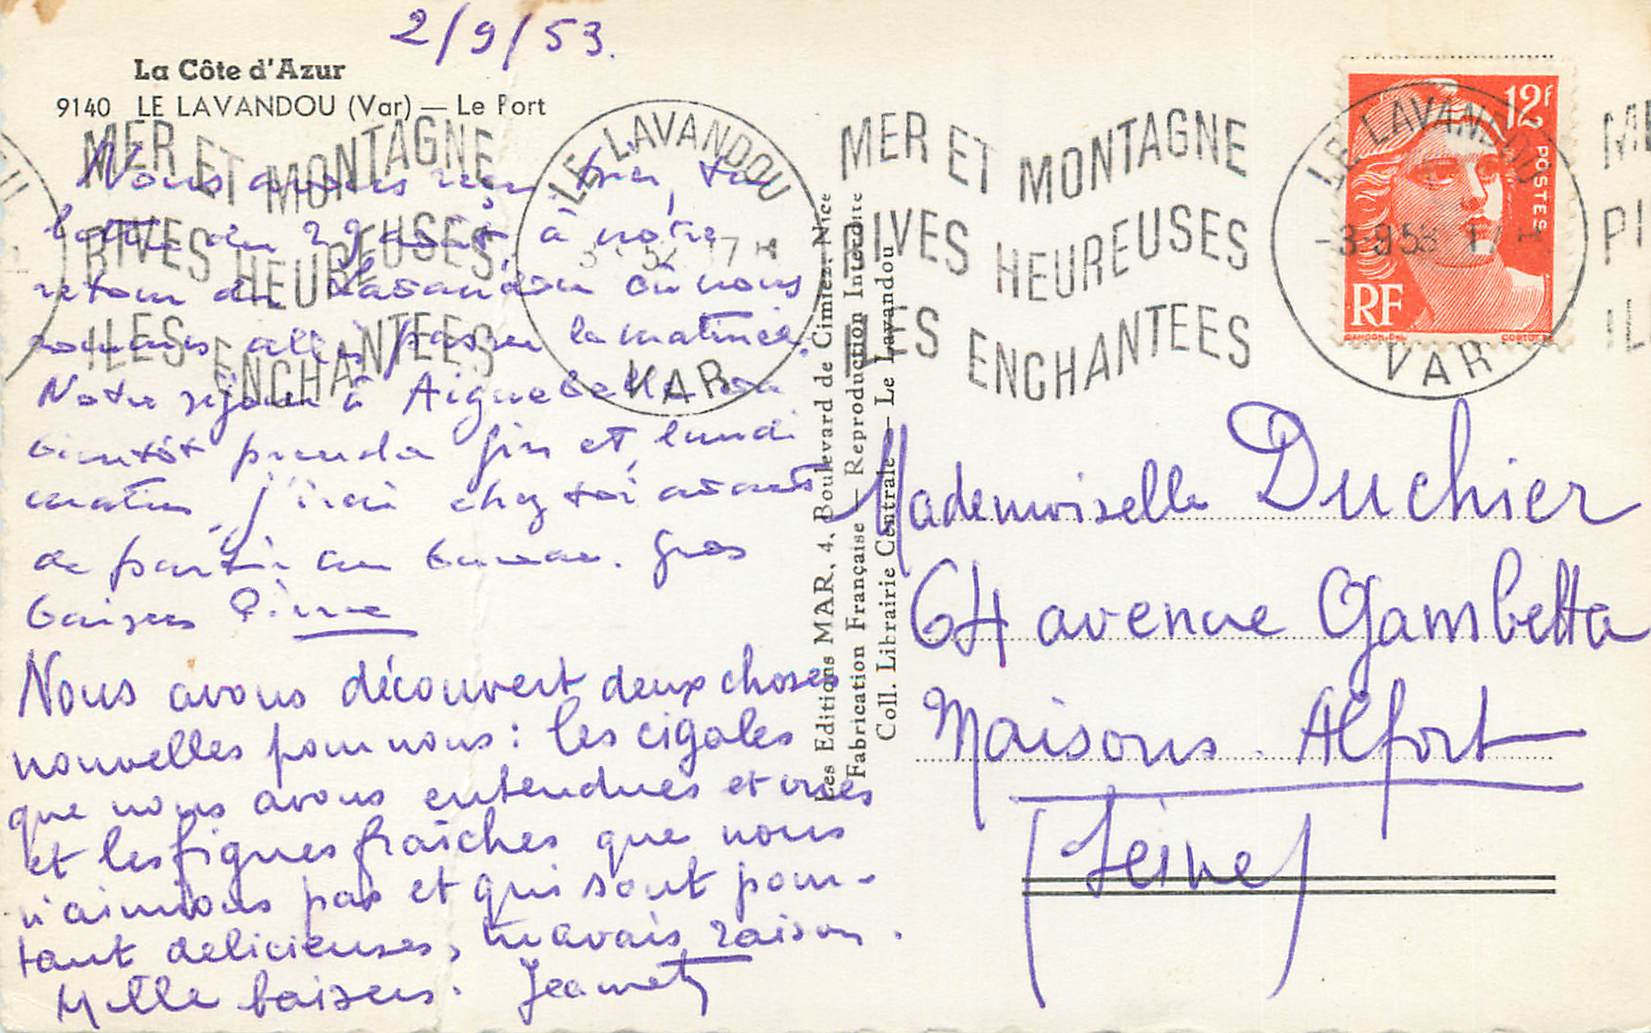 2/9/53.
La Côte d'Azur
9140 LE LAVANDOU (Var) — Le Port
Nous avons reçu hier, ta
lettre du 29 août à notre
retour du Lavandou où nous
sommes allés passer la matinée.
Notre séjour à Aiguebelle va
bientôt prendre fin et lundi
matin, j'irai chez toi avant
de partir au bureau. Gros
baisers
Nous avons découvert deux choses
nouvelles pour nous : les cigales
que nous avons entendues et vues
et les figues fraîches que nous
n'aimions pas et qui sont pour-
tant délicieuses, tu avais raison.
Mille baisers. Jeannette
MER ET MONTAGNE
RIVES HEUREUSES
ILES ENCHANTEES
LE LAVANDOU
VAR
MER ET MONTAGNE
RIVES HEUREUSES
ILES ENCHANTEES
LE LAVANDOU
-3-9 53
VAR
12f
POSTES
RF
GANDON-DEL
Les Editions MAR, 4, Boulevard de Cimiez, Nice
Fabrication Française — Reproduction Interdite
Coll. Librairie Centrale — Le Lavandou
Mademoiselle Duchier
64 avenue Gambetta
Maisons-Alfort
(Seine)